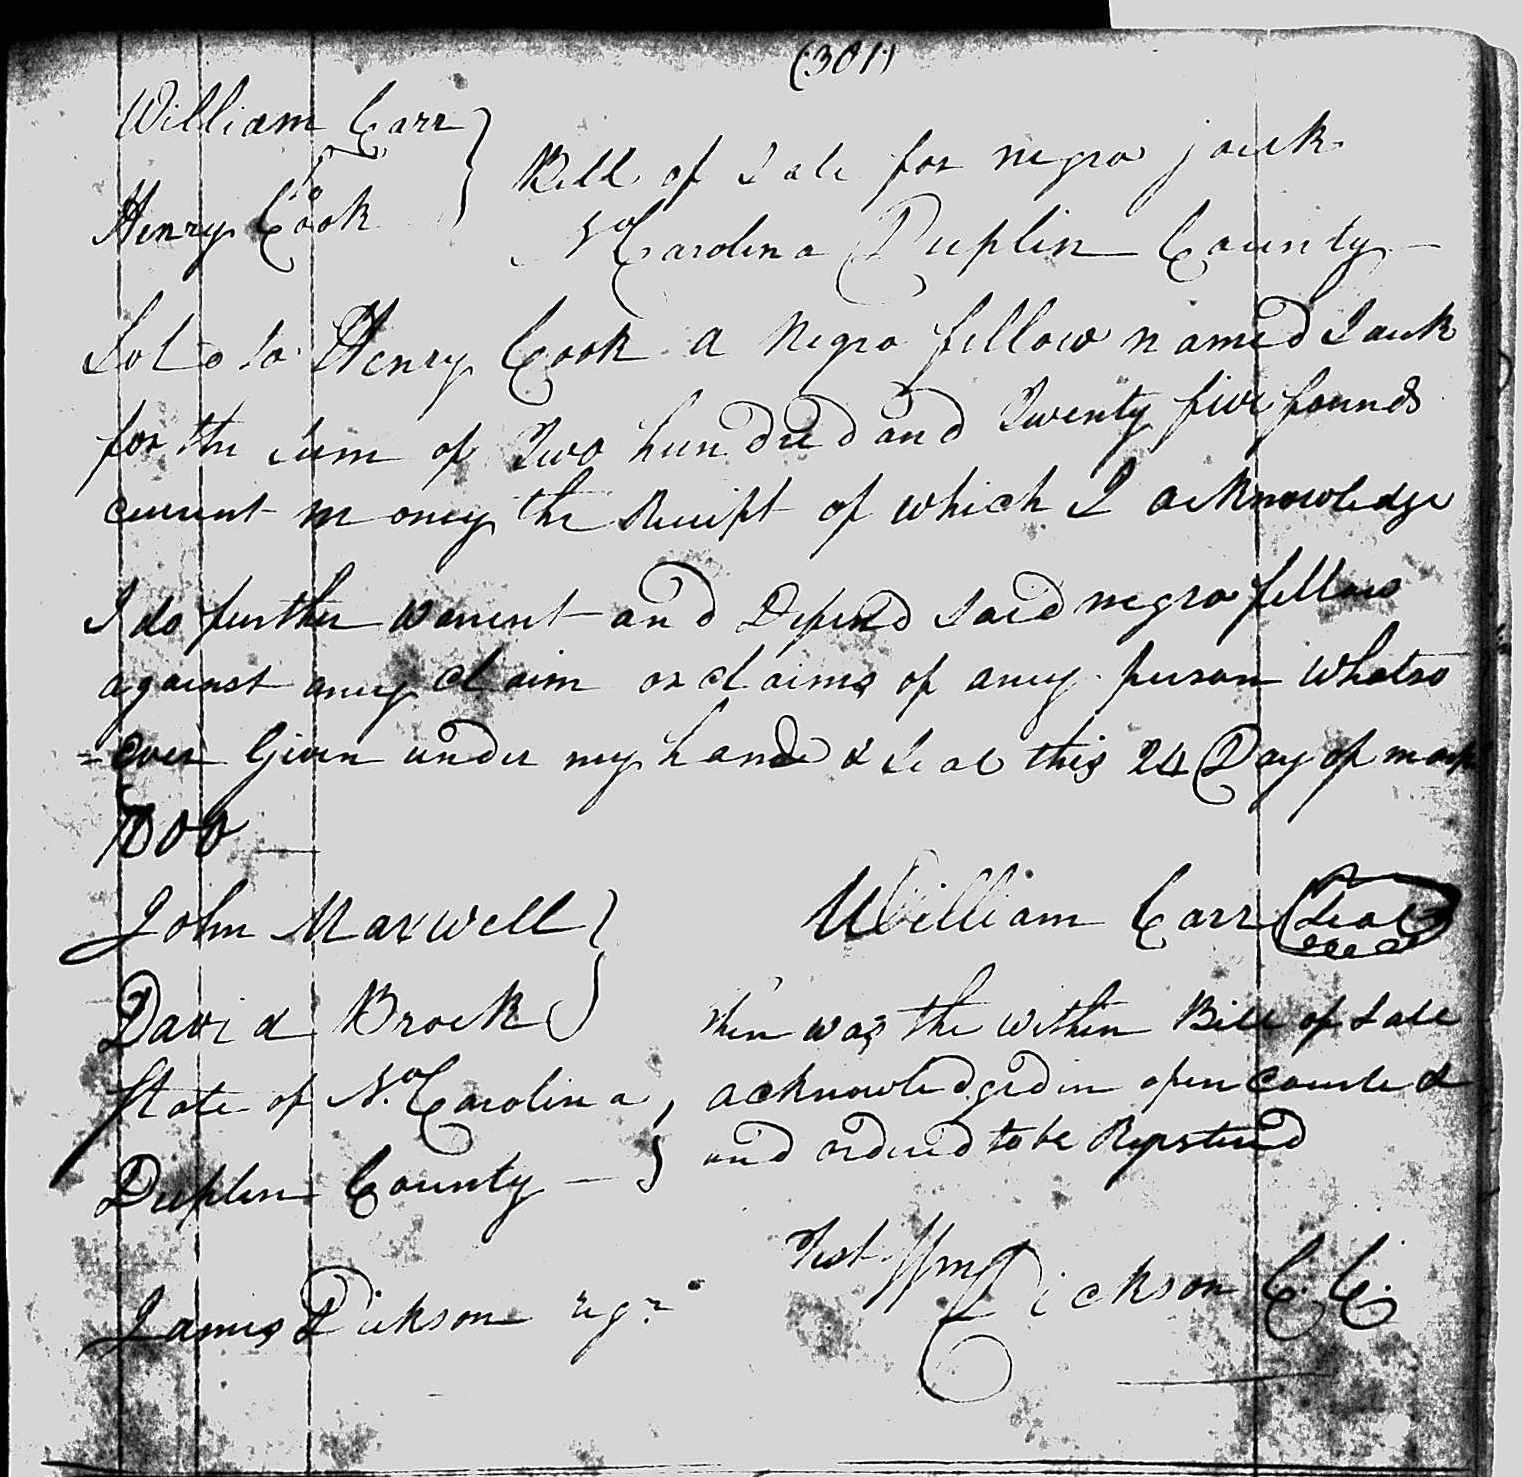 (301)
William Carr
to
Henry Cook
Bill of Sale for negro jack
No Carolina Duplin County
Sold to Henry Cook a Negro fellow named Jack
for the sum of Two hundred and Twenty five pounds
current money the Receipt of which I acknowledge
I do further warrent and Defend said negro fellow
against any claim or claims of any person whatso
=ever Given under my hande & Seal this 24 Day of
1800
John Maxwell
David Brock
William Carr Seal
State of No. Carolina,
Duplin County
then was the within Bill of Sale
acknowledged in open Courte &
and ordered to be Registered
Test Wm Dickson C. C.
James Dickson regr